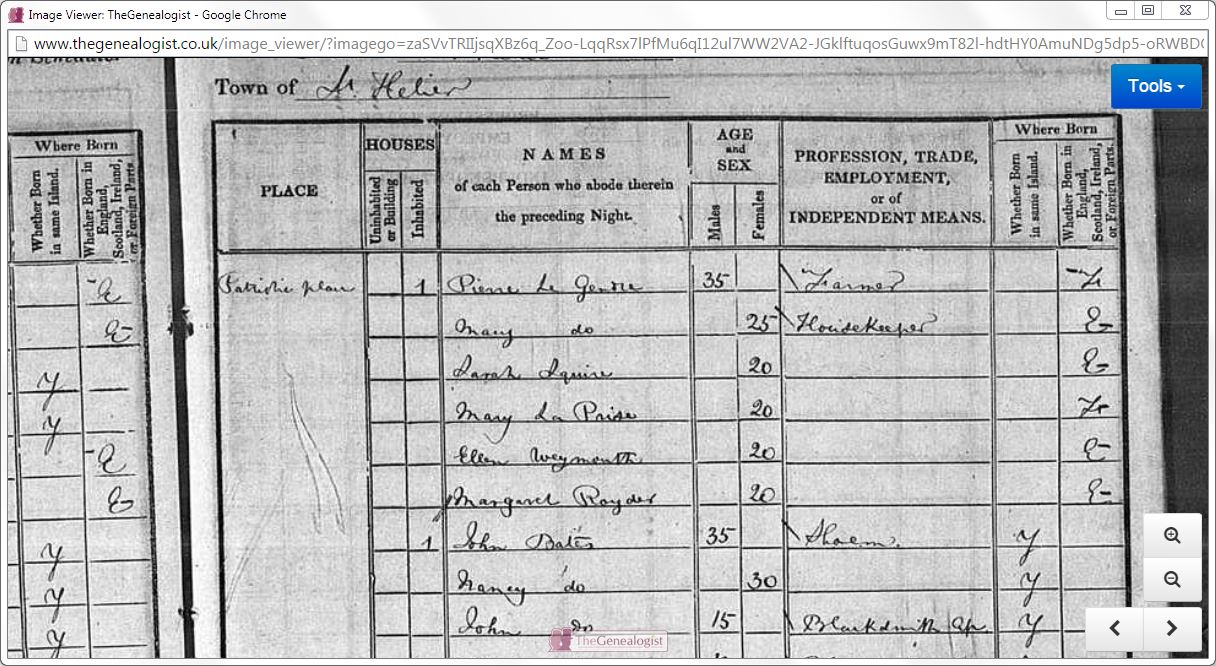 Image Viewer: TheGenealogist - Google Chrome
www.thegenealogist.co.uk/image_viewer/?imagego=zaSVvTRIIjsqXBz6q_Zoo-LqqRsx7lPfMu6qI12ul7WW2VA2-JGklftuqosGuwx9mT82l-hdtHY0AmuNDg5dp5-oRWBD
Tools
Town of St. Helier
Where Born
Whether Born in same Island.
Whether Born in England, Scotland, Ireland, or Foreign Parts.
PLACE
HOUSES
Uninhabited or Building
Inhabited
NAMES
of each Person who abode therein
the preceding Night.
AGE
and
SEX
Males
Females
PROFESSION, TRADE,
EMPLOYMENT,
or of
INDEPENDENT MEANS.
Where Born
Whether Born in same Island.
Whether Born in England, Scotland, Ireland, or Foreign Parts.
E 1 Pierre Le 35 Farmer Fr
E Mary do 25 Housekeeper E
y Sarah Squire 20 E
y Mary La 20 Fr
E Ellen Weymouth 20 E
E Margaret 20 E
y 1 John Bates 35 Shoem. y
y Nancy do 30 y
y John do 15 Blacksmith Ap. y
TheGenealogist